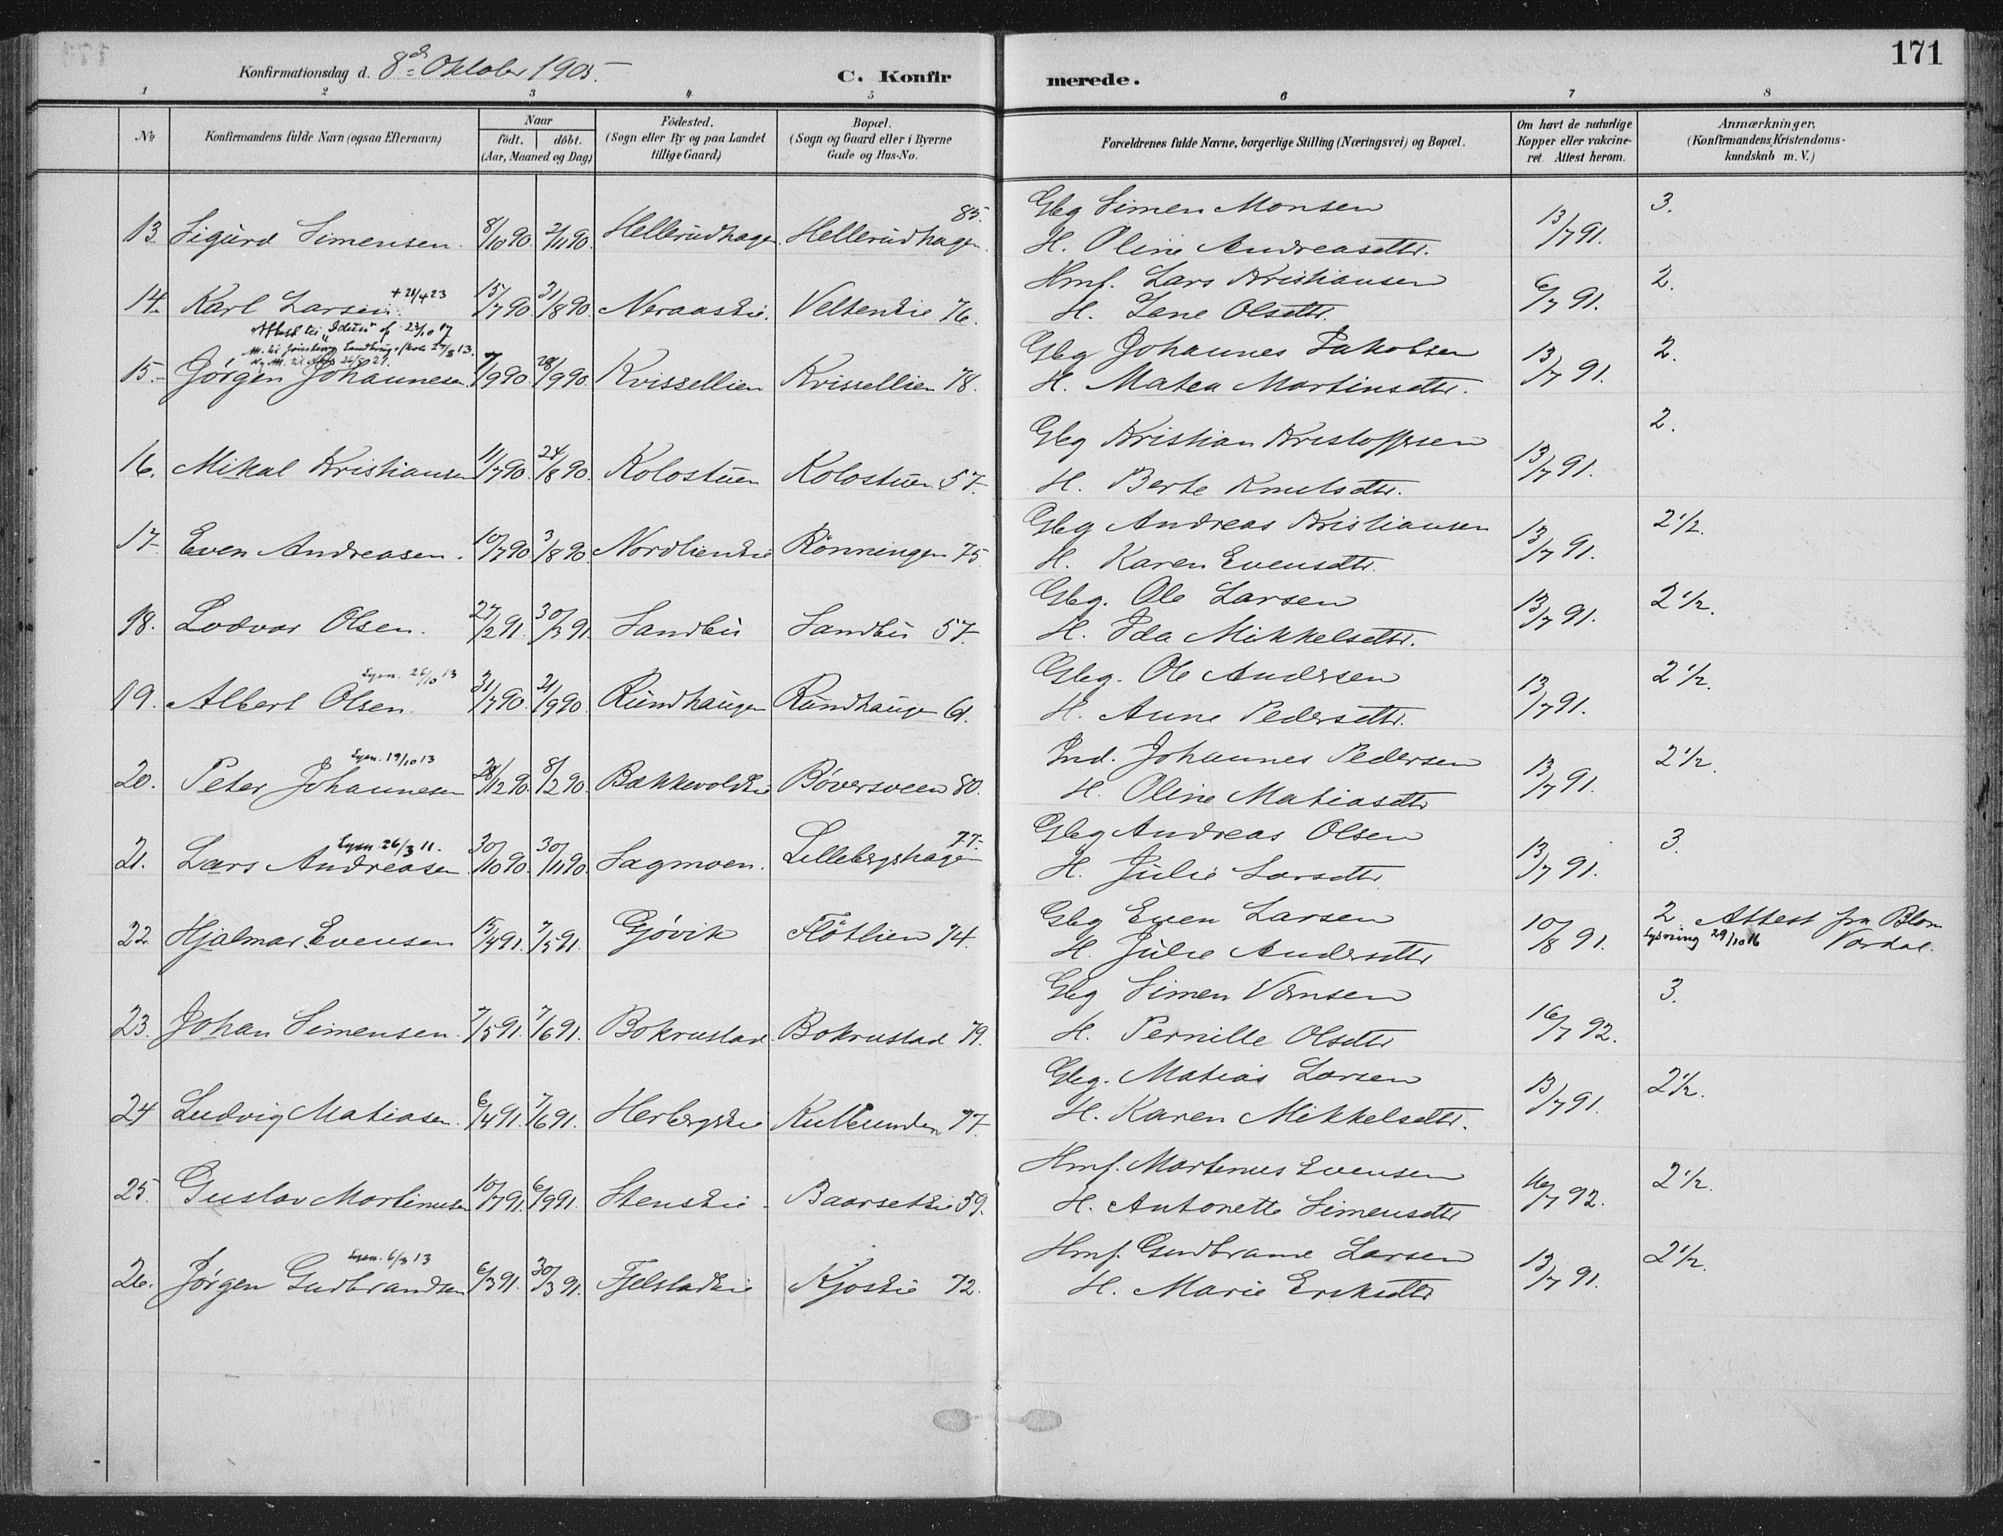 171
Konfirmationsdag d. 8de Oktober 1905.
C. Konfirmerede.
1 2 3 4 5 6 7 8
No
Konfirmandens fulde Navn (ogsaa Efternavn)
Naar
födt. döbt.
(Aar, Maaned og Dag)
Födested.
(Sogn eller By og paa Landet
tillige Gaard)
Bopæl.
(Sogn og Gaard eller i Byerne
Gade og Hus-No.
Forældrenes fulde Navne, borgerlige Stilling (Næringsvei) og Bopæl.
Om havt de naturlige
Kopper eller vakcine-
ret Attest herom.
Anmærkninger,
(Konfirmandens Kristendoms-
kundskab m. V.)
13. Sigurd Simensen. 8/10 90. 2/11 90. Hellerudhagen Hellerudhagen 85. Gbg Simen Monsen 13/7 91. 3.
H. Oline Andreasdtr.
14. Karl Larsen. + 21/4 23 15/7 90. 31/8 90. Neraaseie. Velteneie 76. Hmf. Lars Kristiansen 6/7 91. 2.
H. Lene Olsdtr.
15. Jørgen Johannesen 7/9 90. 28/9 90. Kvissellien Kvissellien 78. Gbg Johannes Jakobsen 13/7 91. 2.
H. Matea Martinsdtr.
16. Mikal Kristiansen 11/7 90. 24/8 90. Kolostuen Kolostuen 57. Gbg Kristian Kristoffersen 13/7 91. 2.
H. Berte Knutsdtr.
17. Even Andreasen. 10/7 90. 3/8 90. Nordlieneie Rönningen 75. Gbg Andreas Kristiansen 13/7 91. 2 1/2.
H. Karen Evensdtr.
18. Lodvar Olsen. 27/2 91. 30/3 91. Sandbu Sandbu 57. Gbg. Ole Larsen 13/7 91. 2 1/2.
H. Ida Mikkelsdtr.
19. Albert Olsen. Lysn. 26/10 13 31/7 90. 21/9 90. Rundhaugen Rundhaugen 61. Gbg. Ole Andersen 13/7 91. 2 1/2.
H. Anne Pedersdtr.
20. Peter Johannesen Lysn. 19/10 13 28/12 90. 8/2 90. Bækkevoldeie Bøversveen 80. Ind. Johannes Pedersen 13/7 91. 2 1/2.
H. Oline Matiasdtr
21. Lars Andreasen Lysn. 26/3 11. 30/10 90. 30/11 90. Sagmoen. Lillebergshagen 77. Gbg Andreas Olsen 13/7 91. 3.
H. Julie Larsdtr.
22. Hjalmar Evensen 15/4 91. 7/5 91. Gjøvik Flötlien 74. Gbg Even Larsen 10/8 91. 2 Attest fra Blom
H. Julie Andersdtr Lysning 29/10 16 Vardal.
23. Johan Simensen. 7/5 91. 7/6 91. Bokrustad Bokrustad 79. Gbg Simen 16/7 92. 3.
H. Pernille Olsdtr
24 Ludvig Matiasen. 6/4 91. 7/6 91. Kulbunden 77. Gbg. Matias Larsen 13/7 91. 2 1/2.
H. Karen Mikkelsdtr.
25. Gustav Martinusen 10/7 91. 6/9 91. Steneeie. Baarseteie 59. Hmf. Martinus Evensen 16/7 92. 2 1/2.
H. Antonette Simensdtr
26. Jørgen Gudbrandsen Lysn. 6/3 13 6/3 91. 30/3 91. Fjelstadeie Kjoseie 72. Hmf. Gudbrand Larsen 13/7 91. 2 1/2.
H. Marie Eriksdtr